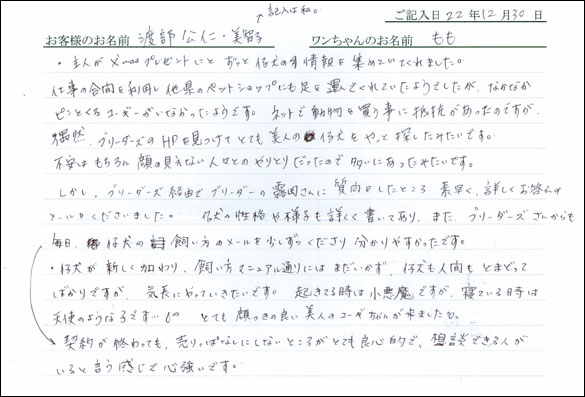 記入は私。
ご記入日 22年12月30日
お客様のお名前 渡部 公仁・美智子 ワンちゃんのお名前 もも
・主人がX'masプレゼントにと ずっと仔犬の情報を集めていてくれました。
仕事の合間を利用し他県のペットショップにも足を運んでくれていたようでしたが、なかなか
ピンとくるコーギーがいなかったようです。ネットで動物を買う事に抵抗があったのですが、
偶然、ブリーダーズのHPを見つけてとても美人の仔犬をやっと探したみたいです。
不安はもちろん顔の見えない人とのやりとりだったので多いにあったみたいです。
しかし、ブリーダーズ経由でブリーダーの 田さんに質問をしたところ 素早く、詳しくお答え
メールをくださいました。 仔犬の性格や様子も詳しく書いてあり、また、ブリーダーズさんからも
毎日、仔犬の飼い方のメールを少しずつくださり分かりやすかったです。
・仔犬が新しく加わり、飼い方マニュアル通りにはまだいかず、仔犬も人間もとまどって
ばかりですが、気長にやっていきたいです。起きてる時は小悪魔ですが、寝ている時は
天使のような子です… とても顔つきの良い美人のコーギちゃんが来ました♡。
契約が終わっても、売りっぱなしにしないところがとても良心的で、相談できる人が
いると言う感じで心強いです。